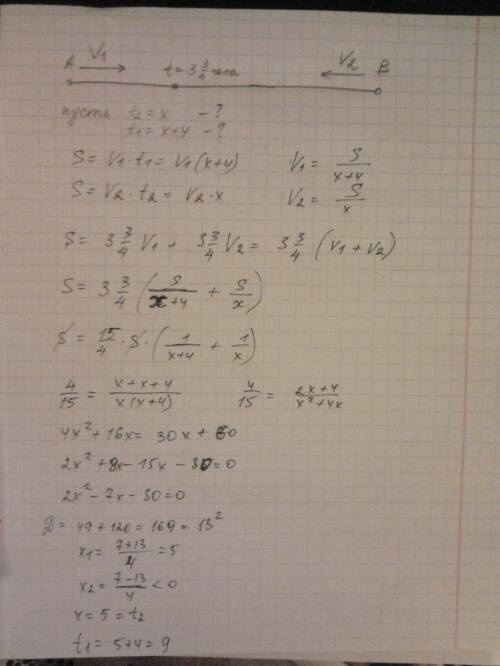 A V1 t = 3 3/4 часа V2 B
пусть t2 = x - ?
t1 = x+4 - ?
S = V1 · t1 = V1 (x+4) V1 = S/(x+4)
S = V2 · t2 = V2 · x V2 = S/x
S = 3 3/4 V1 + 3 3/4 V2 = 3 3/4 (V1 + V2)
S = 3 3/4 (S/(x+4) + S/x)
S = 15/4 · S · (1/(x+4) + 1/x)
4/15 = (x+x+4)/(x(x+4)) 4/15 = (2x+4)/(x²+4x)
4x² + 16x = 30x + 60
2x² + 8x - 15x - 30 = 0
2x² - 7x - 30 = 0
D = 49 + 120 = 169 = 13²
x1 = (7+13)/4 = 5
x2 = (7-13)/4 < 0
x = 5 = t2
t1 = 5+4 = 9